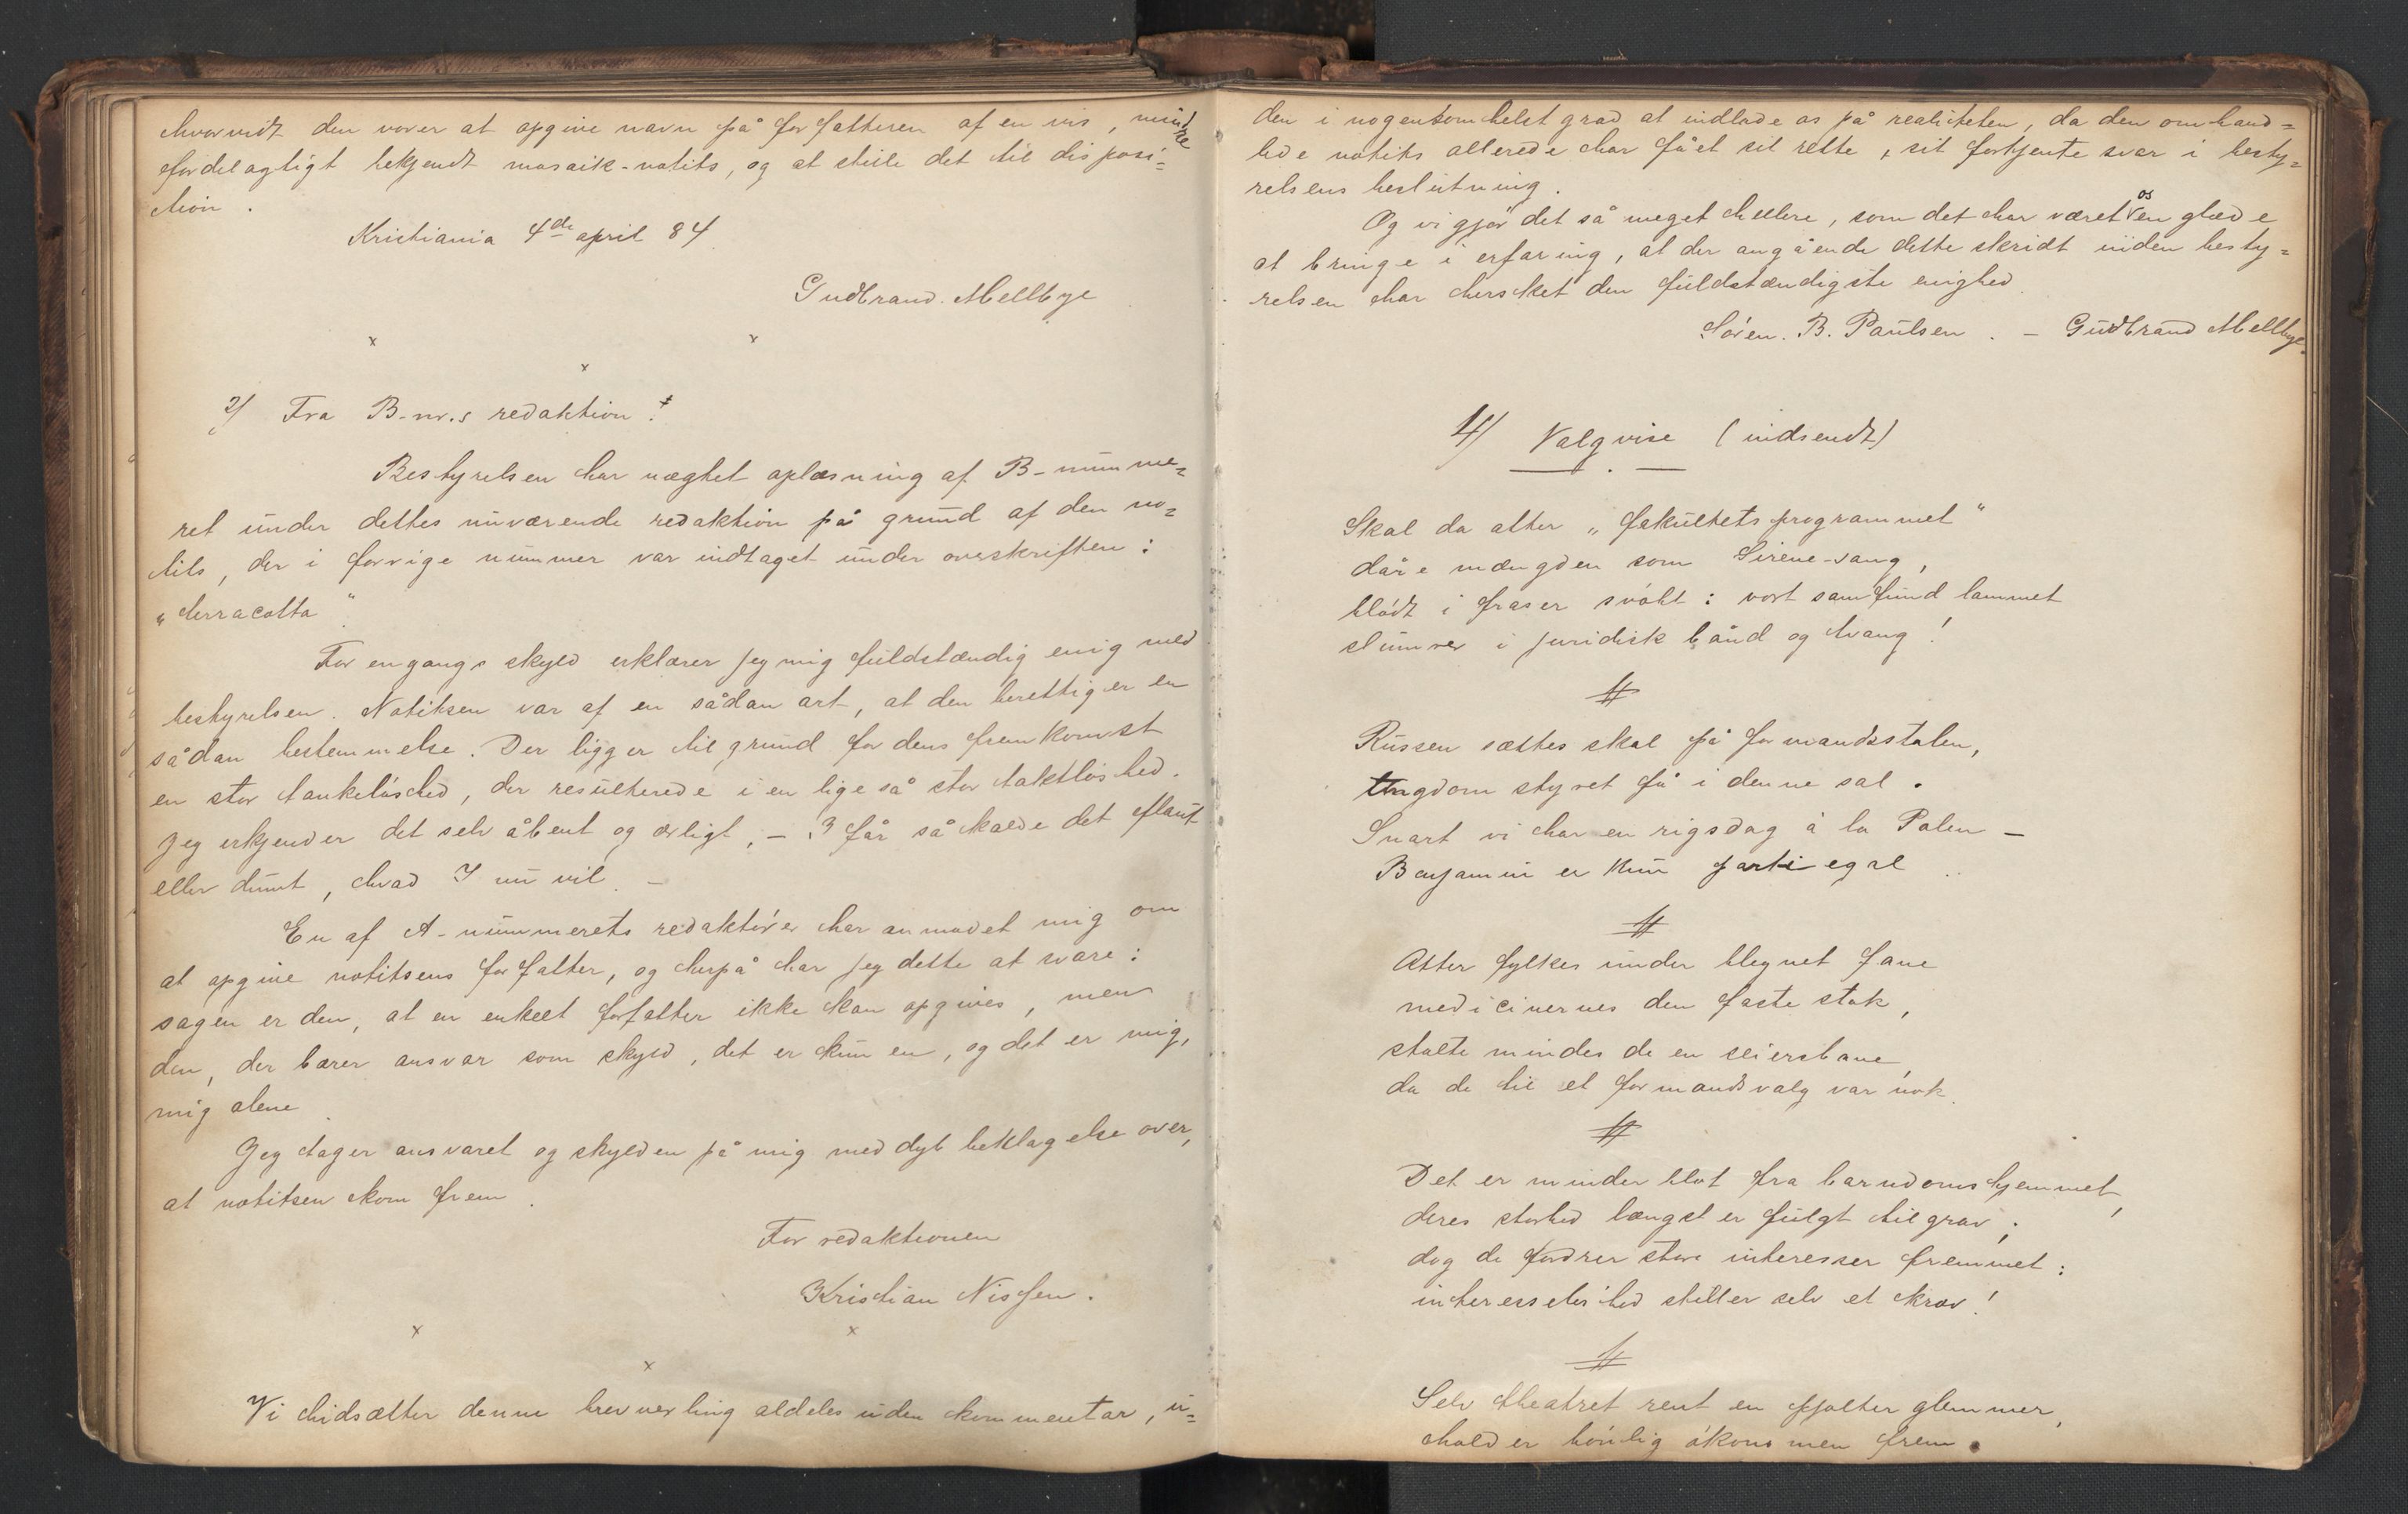 hvorvidt den vover at opgive navn på forfatteren af en vis, mindre
fordelagtigt bekjendt mosaik-notits, og at stille det til disposi-
tion.
Kristiania 4de april 84
Gudbrand Mellbye
x x
x
2/ Fra B-nr.s redaktion:
Bestyrelsen har nægtet oplæsning af B-numme-
ret under dettes nuværende redaktion på grund af den no-
tits, der i forrige nummer var indtaget under overskriften:
"terracotta"
For engangs skyld erklærer jeg mig fuldstændig enig med
bestyrelsen. Notitsen var af en sådan art, at den berettiger en
sådan bestemmelse. Der ligger til grund for dens fremkomst
en stor tankeløshed, der resulterede i en lige så stor taktløshed.
Jeg erkjender det selv åbent og ærligt, – I får så kalde det flaut
eller dumt, hvad I nu vil. –
En af A-nummerets redaktører har anmodet mig om
at opgive notitsens forfatter, og herpå har jeg dette at svare:
sagen er den, at en enkelt forfatter ikke kan opgives, men
den, der bærer ansvar som skyld, det er kun en, og det er mig,
mig alene.
Jeg tager ansvaret og skylden på mig med dyb beklagelse over,
at notitsen kom frem.
For redaktionen
Kristian Nissen.
x x
x
Vi hidsætter denne brevvexling aldeles uden kommentar, u-
den i nogensomhelst grad at indlade os på realiteten, da den omhand-
lede notits allerede har fået sit rette, sit fortjente svar i besty-
relsens beslutning.
Og vi gjør det så meget hellere, som det har været os en glæde
at bringe i erfaring, at der angående dette skridt inden besty-
relsen har hersket den fuldstændigste enighed.
Søren. B. Paulsen. – Gudbrand Mellbye.
4/ Valgvise (indsendt)
Skal da atter "fakultetsprogrammet"
dåre mængden som Sirene-sang,
blødt i fraser svøbt: vort samfund lammet
slumrer i juridisk bånd og tvang!
Russen sættes skal på formandsstolen,
ungdom styret få i denne sal.
Snart vi har en rigsdag à la Polen –
Benjamin er kun parti egal.
Atter fylkes under blegnet fane
medicinernes den faste stok,
stolte mindes de en seiersbane,
da de til et formandsvalg var nok.
Det er minder blot fra barndomshjemmet,
deres storhed længst er fulgt til grav;
dog de fordrer store interesser fremmet:
interesseløshed stiller selv et krav!
Selv theatret rent en pjalter glemmer,
holder hønlig økonomen frem.